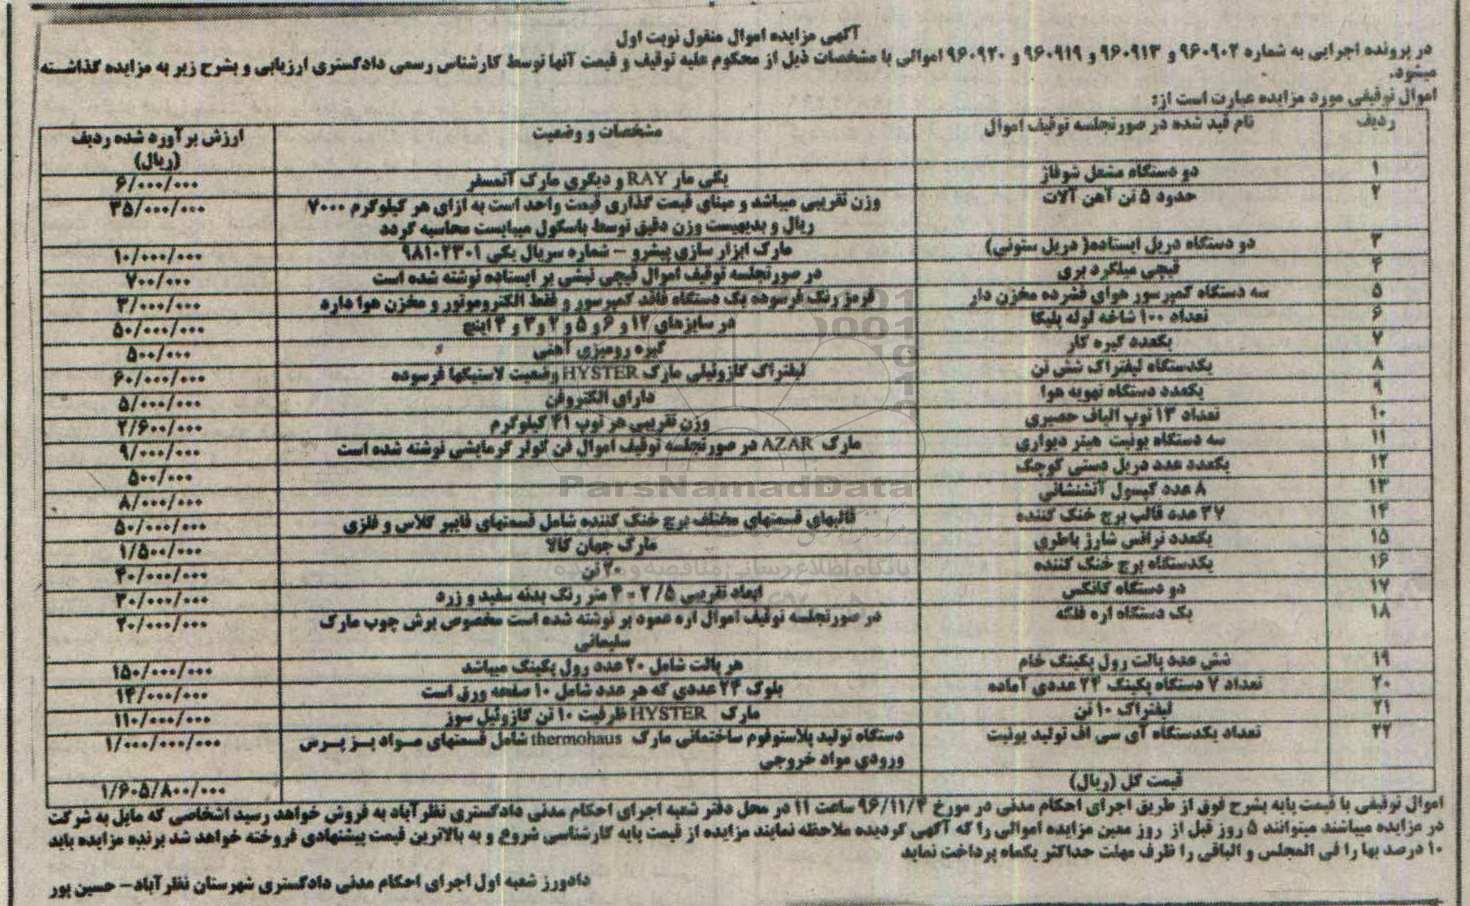 آگهی مزایده اموال منقول نوبت اول
در پرونده اجرایی به شماره ۹۶۰۹۰۲ و ۹۶۰۹۱۳ و ۹۶۰۹۱۹ و ۹۶۰۹۲۰ اموالی با مشخصات ذیل از محکوم علیه توقیف و قیمت آنها توسط کارشناس رسمی دادگستری ارزیابی و بشرح زیر به مزایده گذاشته
میشود.
اموال توقیفی مورد مزایده عبارت است از:
ردیف نام قید شده در صورتجلسه توقیف اموال مشخصات و وضعیت ارزش برآورد شده ردیف
(ریال)
۱ دو دستگاه مشعل شوفاژ یکی مار RAY و دیگری مارک اتمسفر ۶/۰۰۰/۰۰۰
۲ حدود ۵ تن آهن آلات وزن تقریبی میباشد و مبنای قیمت گذاری قیمت واحد است به ازای هر کیلوگرم ۷۰۰۰ ۳۵/۰۰۰/۰۰۰
ریال و بدیهیست وزن دقیق توسط باسکول میبایست محاسبه گردد
۳ دو دستگاه دریل ایستاده( دریل ستونی) مارک ابزار سازی پیشرو – شماره سریال یکی ۹۸۱۰۲۳۰۱ ۱۰/۰۰۰/۰۰۰
۴ قیچی میلگرد بری در صورتجلسه توقیف اموال قیچی نبشی بر ایستاده نوشته شده است ۷۰۰/۰۰۰
۵ سه دستگاه کمپرسور هوای فشرده مخزن دار قرمز رنگ فرسوده یک دستگاه فاقد کمپرسور و فقط الکتروموتور و مخزن هوا دارد ۳/۰۰۰/۰۰۰
۶ تعداد ۱۰۰ شاخه لوله پلیکا در سایزهای ۱۲ و ۶ و ۵ و ۲ و ۳ و ۴ اینچ ۵۰/۰۰۰/۰۰۰
۷ یکعدد گیره کار گیره رومیزی آهنی ۵۰۰/۰۰۰
۸ یکدستگاه لیفتراک شش تن لیفتراک گازوئیلی مارک HYSTER وضعیت لاستیکها فرسوده ۶۰/۰۰۰/۰۰۰
۹ یکعدد دستگاه تهویه هوا دارای الکتروفن ۵/۰۰۰/۰۰۰
۱۰ تعداد ۱۳ توپ الیاف حصیری وزن تقریبی هر توپ ۴۱ کیلوگرم ۲/۶۰۰/۰۰۰
۱۱ سه دستگاه یونیت هیتر دیواری مارک AZAR در صورتجلسه توقیف اموال فن کولر گرمایشی نوشته شده است ۹/۰۰۰/۰۰۰
۱۲ یکعدد عدد دریل دستی کوچک ۵۰۰/۰۰۰
۱۳ ۸ عدد کپسول آتشنشانی ۸/۰۰۰/۰۰۰
۱۴ ۲۷ عدد قالب برج خنک کننده قالبهای قسمتهای مختلف برج خنک کننده شامل قسمتهای فایبر گلاس و فلزی ۵۰/۰۰۰/۰۰۰
۱۵ یکعدد ترانس شارژ باطری مارک جهان کالا ۱/۵۰۰/۰۰۰
۱۶ یکدستگاه برج خنک کننده ۲۰ تن ۴۰/۰۰۰/۰۰۰
۱۷ دو دستگاه کانکس ابعاد تقریبی ۲/۵ * ۴ متر رنگ بدنه سفید و زرد ۳۰/۰۰۰/۰۰۰
۱۸ یک دستگاه اره فلکه در صورتجلسه توقیف اموال اره عمود بر نوشته شده است مخصوص برش چوب مارک ۲۰/۰۰۰/۰۰۰
سلیمانی
۱۹ شش عدد پالت رول پکینگ خام هر پالت شامل ۲۰ عدد رول پکینگ میباشد ۱۵۰/۰۰۰/۰۰۰
۲۰ تعداد ۷ دستگاه پکینگ ۲۴ عددی آماده بلوک ۲۴ عددی که هر عدد شامل ۱۰ صفحه ورق است ۱۴/۰۰۰/۰۰۰
۲۱ لیفتراک ۱۰ تن مارک HYSTER ظرفیت ۱۰ تن گازوئیل سوز ۱۱۰/۰۰۰/۰۰۰
۲۲ تعداد یکدستگاه آی سی اف تولید یونیت دستگاه تولید پلاستوفوم ساختمانی مارک thermohaus شامل قسمتهای مواد پز پرس ۱/۰۰۰/۰۰۰/۰۰۰
ورودی مواد خروجی
قیمت کل (ریال) ۱/۶۰۵/۸۰۰/۰۰۰
اموال توقیفی با قیمت پایه بشرح فوق از طریق اجرای احکام مدنی در مورخ ۹۶/۱۱/۴ ساعت ۱۱ در محل دفتر شعبه اجرای احکام مدنی دادگستری نظرآباد به فروش خواهد رسید اشخاصی که مایل به شرکت
در مزایده میباشند میتوانند ۵ روز قبل از روز معین مزایده اموالی را که آگهی گردیده ملاحظه نمایند مزایده از قیمت پایه کارشناسی شروع و به بالاترین قیمت پیشنهادی فروخته خواهد شد برنده مزایده باید
۱۰ درصد بها را فی المجلس و الباقی را ظرف مهلت حداکثر یکماه پرداخت نماید
دادورز شعبه اول اجرای احکام مدنی دادگستری شهرستان نظرآباد– حسین پور
ParsNamadData
پایگاه اطلاع رسانی مناقصه و مزایده